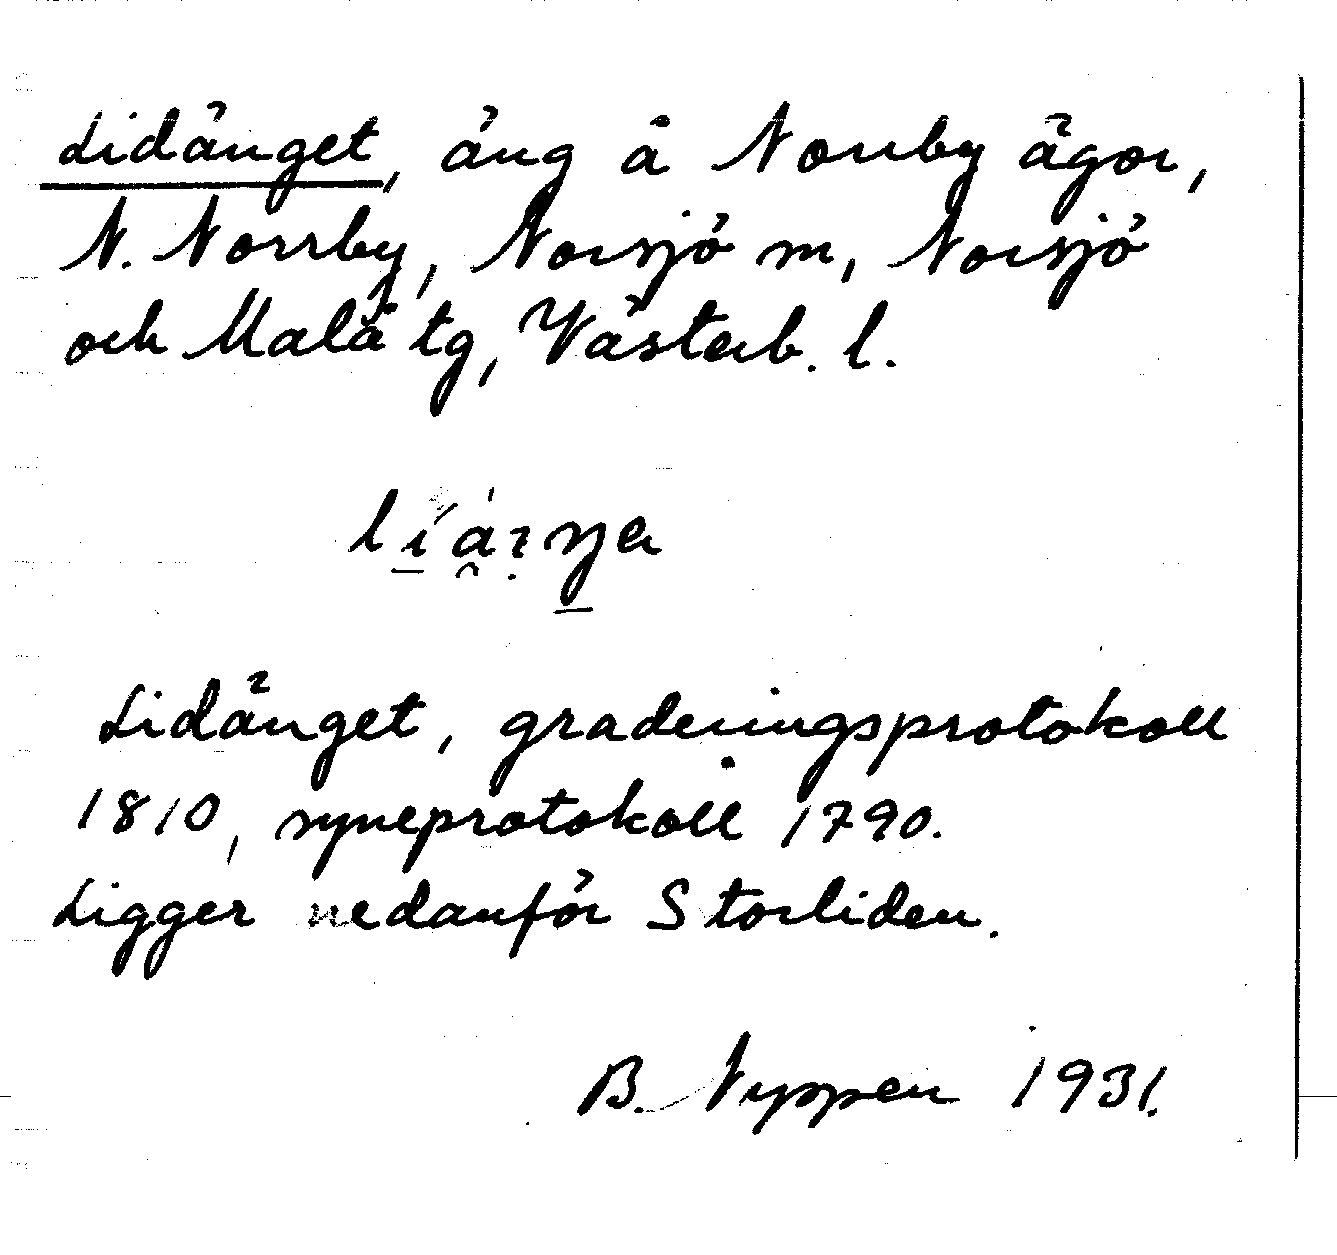 Lidänget, äng å Norrby ägor,
N. Norrby, Norsjö sn, Norsjö
och Malå tg, Västerb. l.
Lidänget, graderingsprotokoll
1810, syneprotokoll 1790.
Ligger nedanför Storliden.
B. Nyppen 1931.